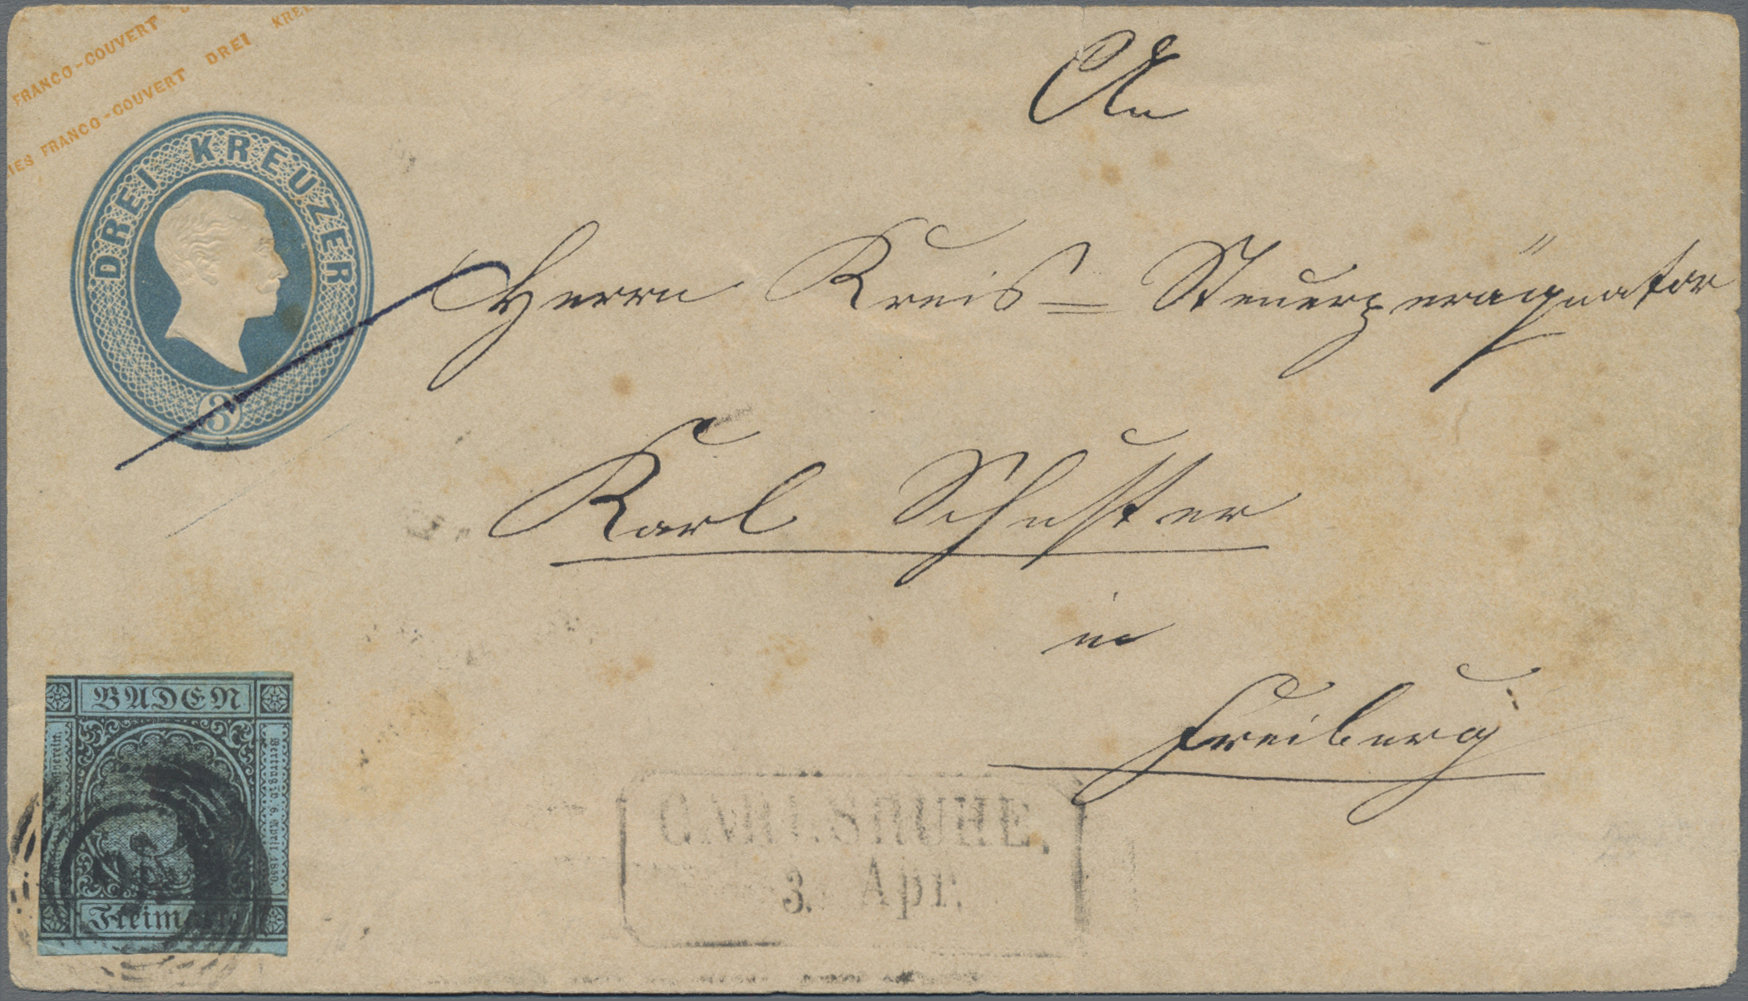 FRANCO-COUVERT
FRANCO-COUVERT DREI
DREI KREUZER
3
An
Herrn Kreis=Steuerperäquator
Karl Schuster
in
Freiburg
BADEN
Freimarke
CARLSRUHE.
3. Apr.